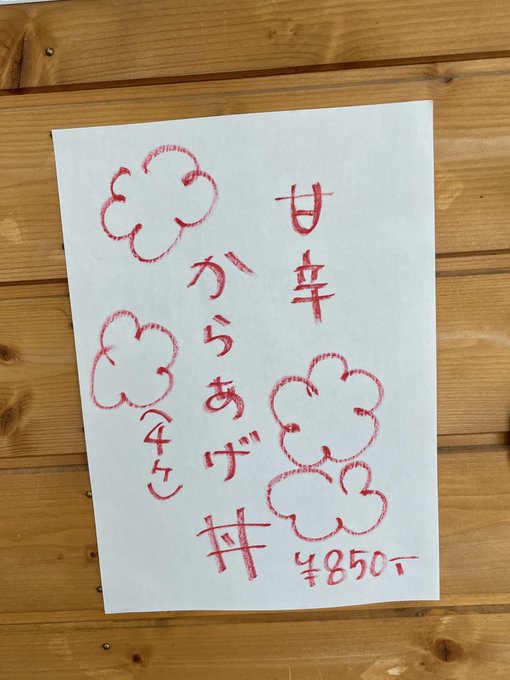 甘辛
からあげ丼
(4ヶ)
¥850-